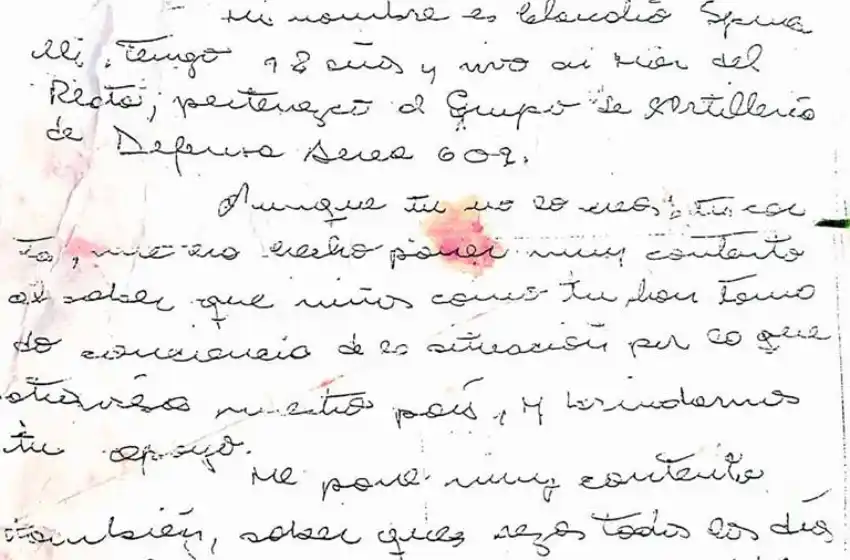 Mi nombre es Claudio Spina
lli. Tengo 18 años y vivo en Mar del
Plata, pertenezco al Grupo de Artillería
de Defensa Aerea 602.
Aunque tu no lo creas, tu car
ta, me ha hecho poner muy contento
al saber que niños como tu han toma
do conciencia de la situación por la que
atraviesa nuestro país, y brindarnos
tu apoyo.
Me pone muy contento
también, saber que rezas todos los días